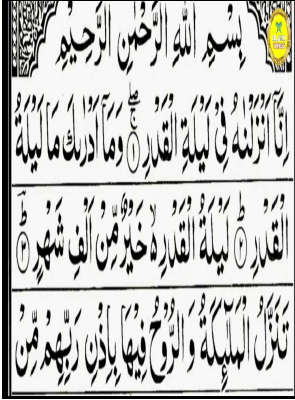 بِسْمِ اللهِ الرَّحْمٰنِ الرَّحِيْمِ
اِنَّآ اَنْزَلْنٰهُ فِیْ لَیْلَةِ الْقَدْرِ ۝۱ وَمَاۤ اَدْرٰىكَ مَا لَیْلَةُ
الْقَدْرِ ۝۲ لَیْلَةُ الْقَدْرِ ۙ خَیْرٌ مِّنْ اَلْفِ شَهْرٍ ۝۳
تَنَزَّلُ الْمَلٰٓئِكَةُ وَ الرُّوْحُ فِیْهَا بِاِذْنِ رَبِّهِمْ مِّنْ